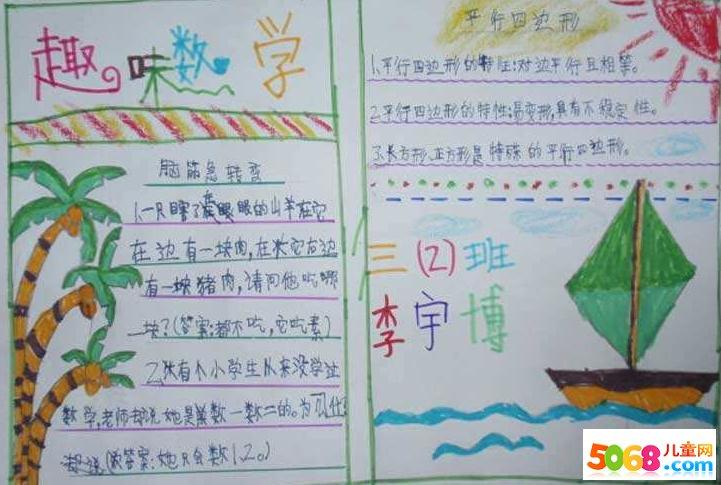 趣味数学
脑筋急转弯
1.一只瞎了左眼的山羊在它
在边有一块肉,在它右边
有一块猪肉,请问他吃哪
块?(答案:都不吃,它吃素)
2.有个小学生从来没学过
数学,老师却说她是数一数二的。为什
说(答案:她只会数1、2。)
平行四边形
1.平行四边形的特征:对边平行且相等。
2.平行四边形的特性:易变形,具有不稳定性。
3.长方形、正方形是特殊的平行四边形。
三(2)班
李宇博
5068儿童网
.com